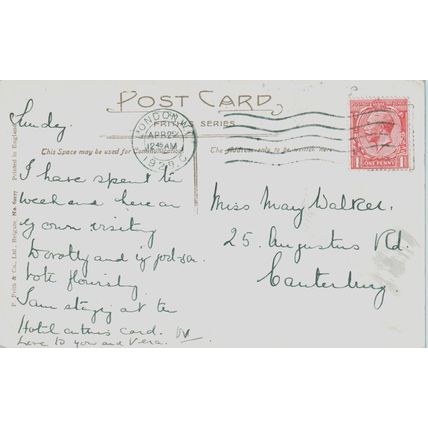 POST CARD
FRITH SERIES
LONDON. W.1
APR 29
12 45 AM
1929. C
This Space may be used for Communication
The Address only to be written here
ONE PENNY
Sunday.
I have spent the
weekend here on
my own visiting
Dorothy and
both flourishing
I am staying at the
Hotel on this card.
Love to you and Vera.
Miss May Walker.
25. Augustus Rd.
Canterbury
F. Frith & Co., Ltd., Reigate. Printed in England.